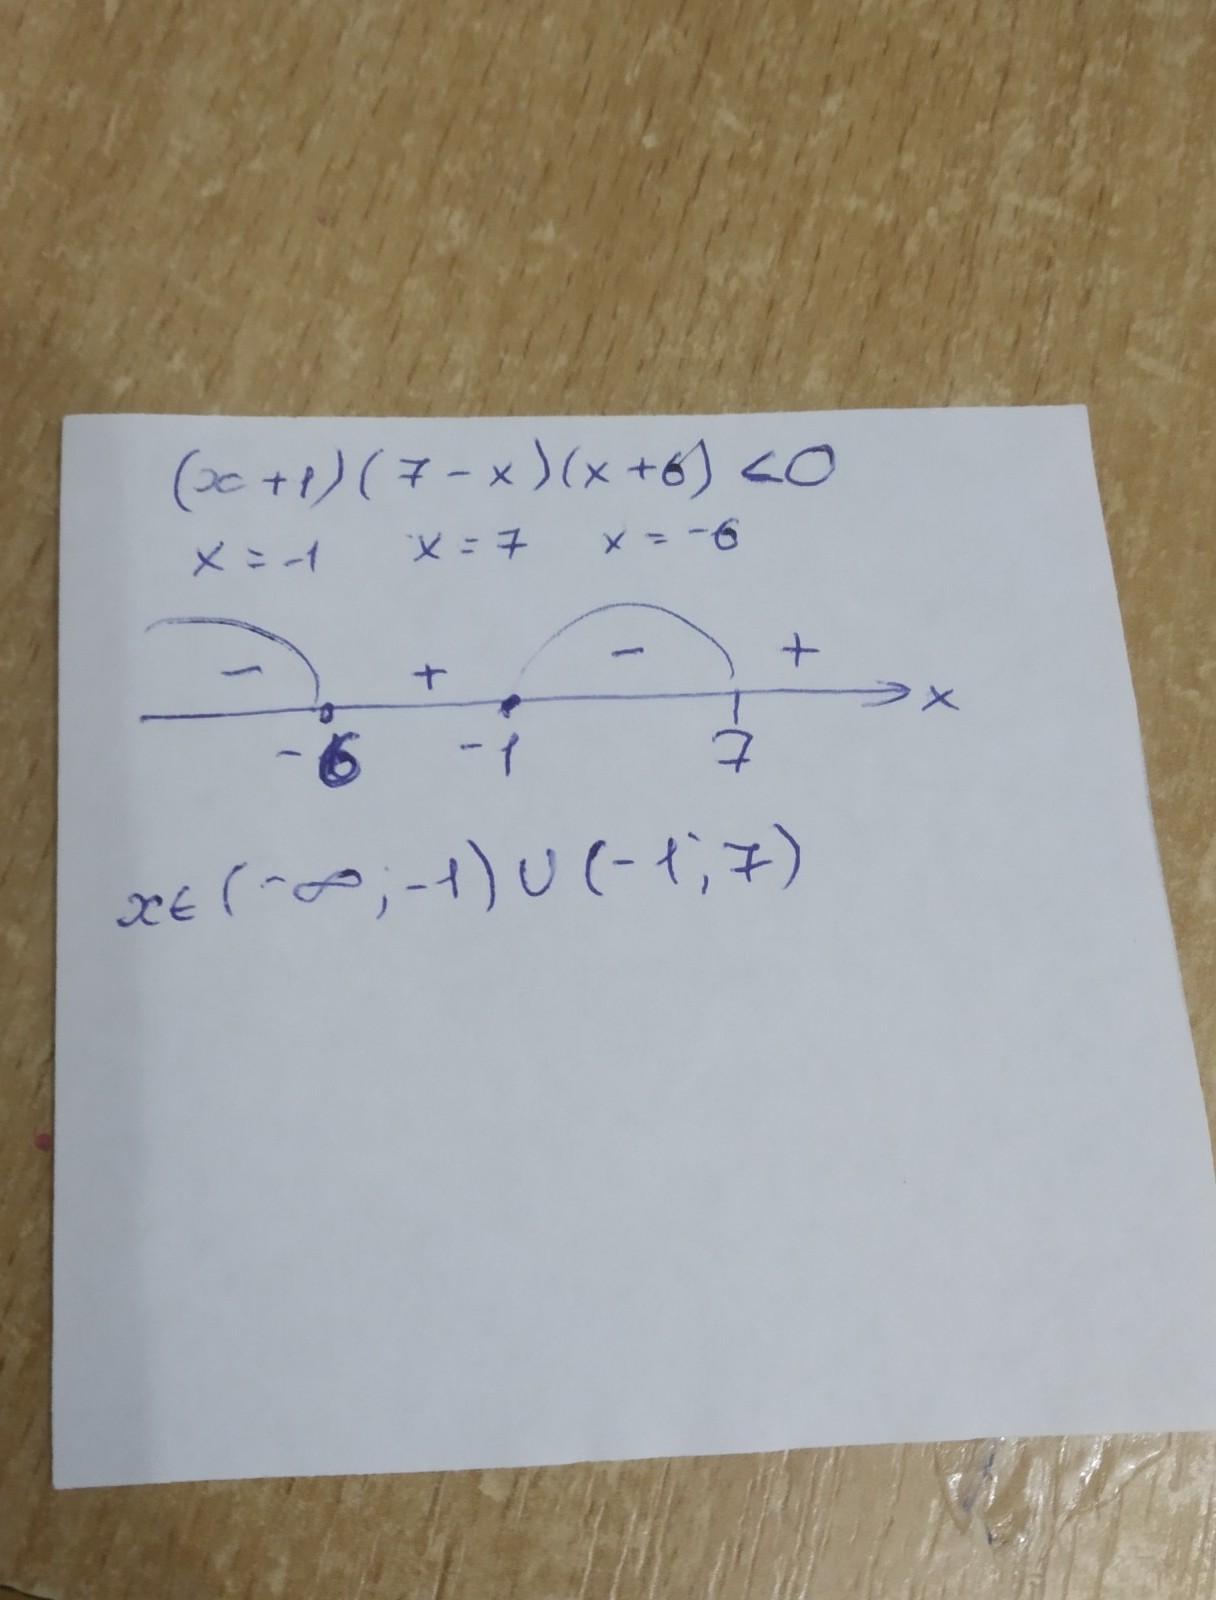 (x+1)(7-x)(x+6)<0
x=-1 x=7 x=-6
- + - +
-6 -1 7 x
x∈(-∞;-1)∪(-1;7)